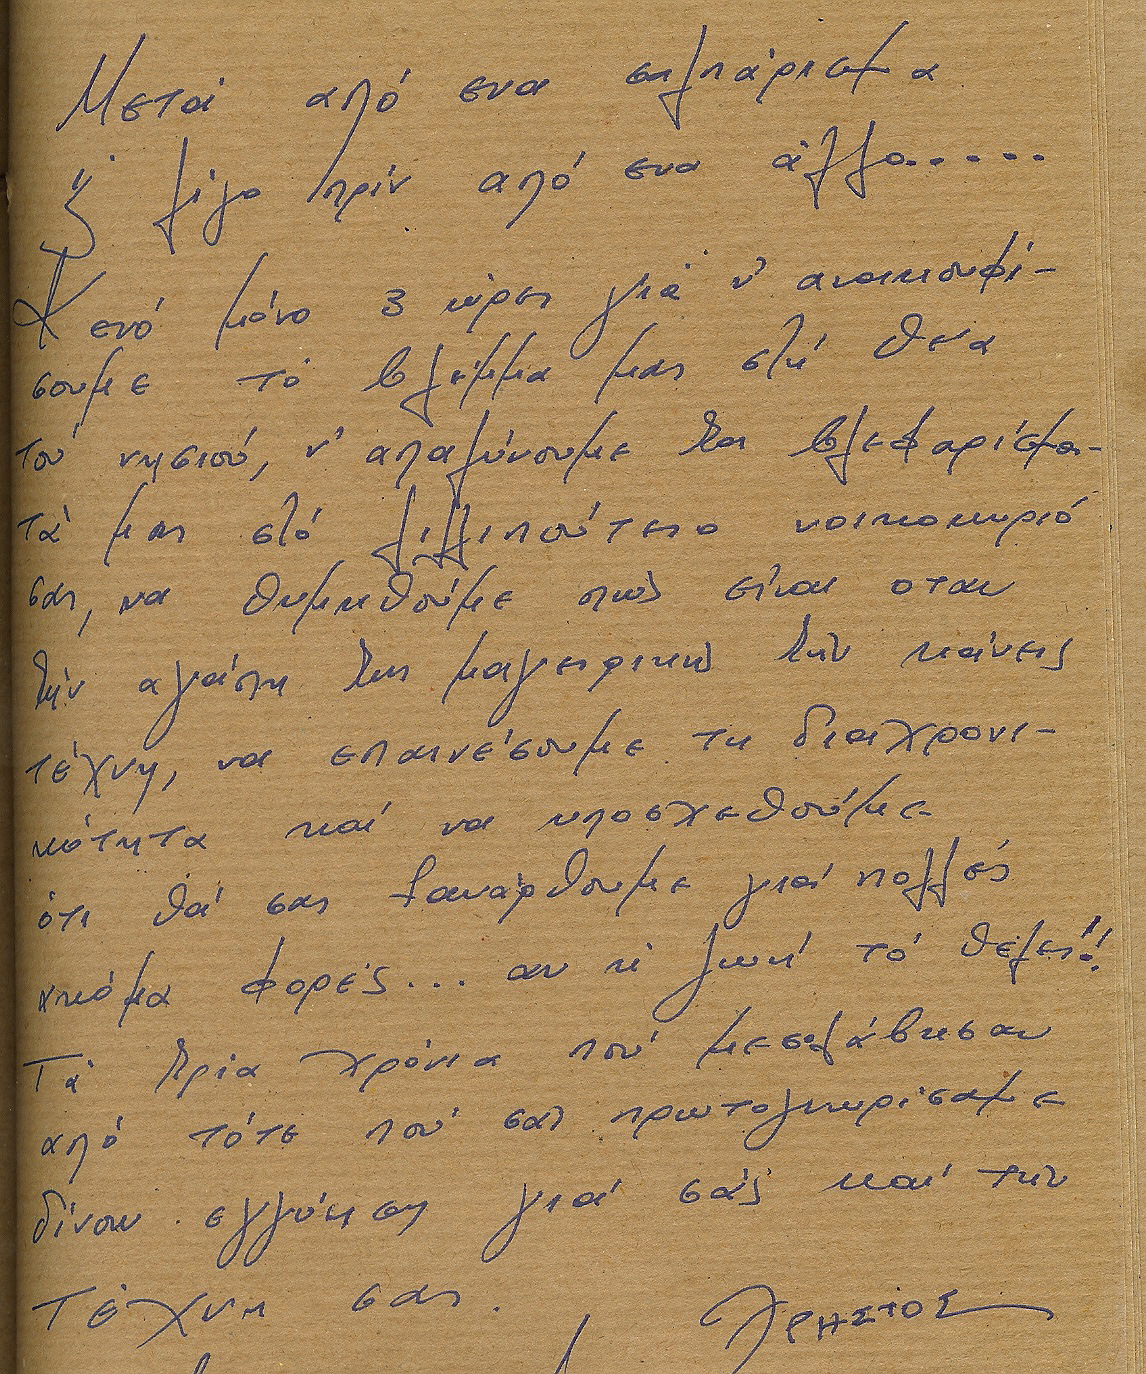 Μετά από ενα σαλπάρισμα
λίγο πρίν από ενα άλλο.....
Κενό μόνο 3 ώρες γιά ν' ανακουφί-
σουμε τό βλέμμα μας στή θέα
τού νησιού, ν' απαλύνουμε τα βλεφαρίσμα-
τά μας στό λιλλιπούτειο νοικοκυριό
σας, να θυμηθούμε πώς είναι οταν
τήν αγάπη της μαγειρικής τήν κάνεις
τέχνη, να επαινέσουμε τη διαχρονι-
κότητα καί να υποσχεθούμε
ότι θά σας ξανάρθουμε γιά πολλές
ακόμα φορές... αν η ζωή τό θέλει!!
Τά τρία χρόνια πού μεσολάβησαν
από τότε πού σας πρωτογνωρίσαμε
δίνουν εγγύηση γιά σάς καί τήν
τέχνη σας.
ΧΡΗΣΤΟΣ